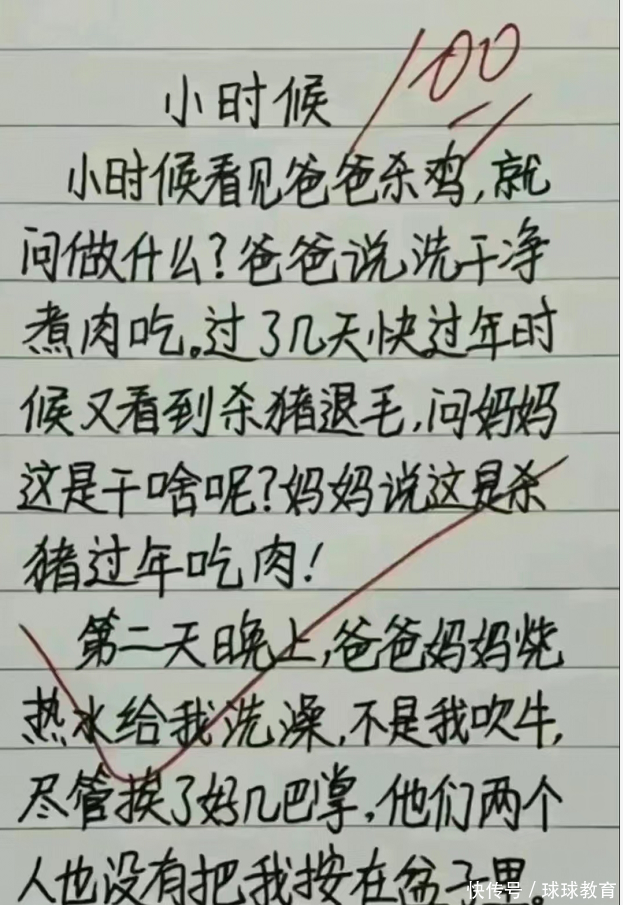 100
小时候
小时候看见爸爸杀鸡,就
问做什么?爸爸说洗干净
煮肉吃。过了几天快过年时
候又看到杀猪退毛,问妈妈
这是干啥呢?妈妈说这是杀
猪过年吃肉!
第二天晚上,爸爸妈妈烧
热水给我洗澡,不是我吹牛,
尽管挨了好几巴掌,他们两个
人也没有把我按在盆子里。
快传号/球球教育